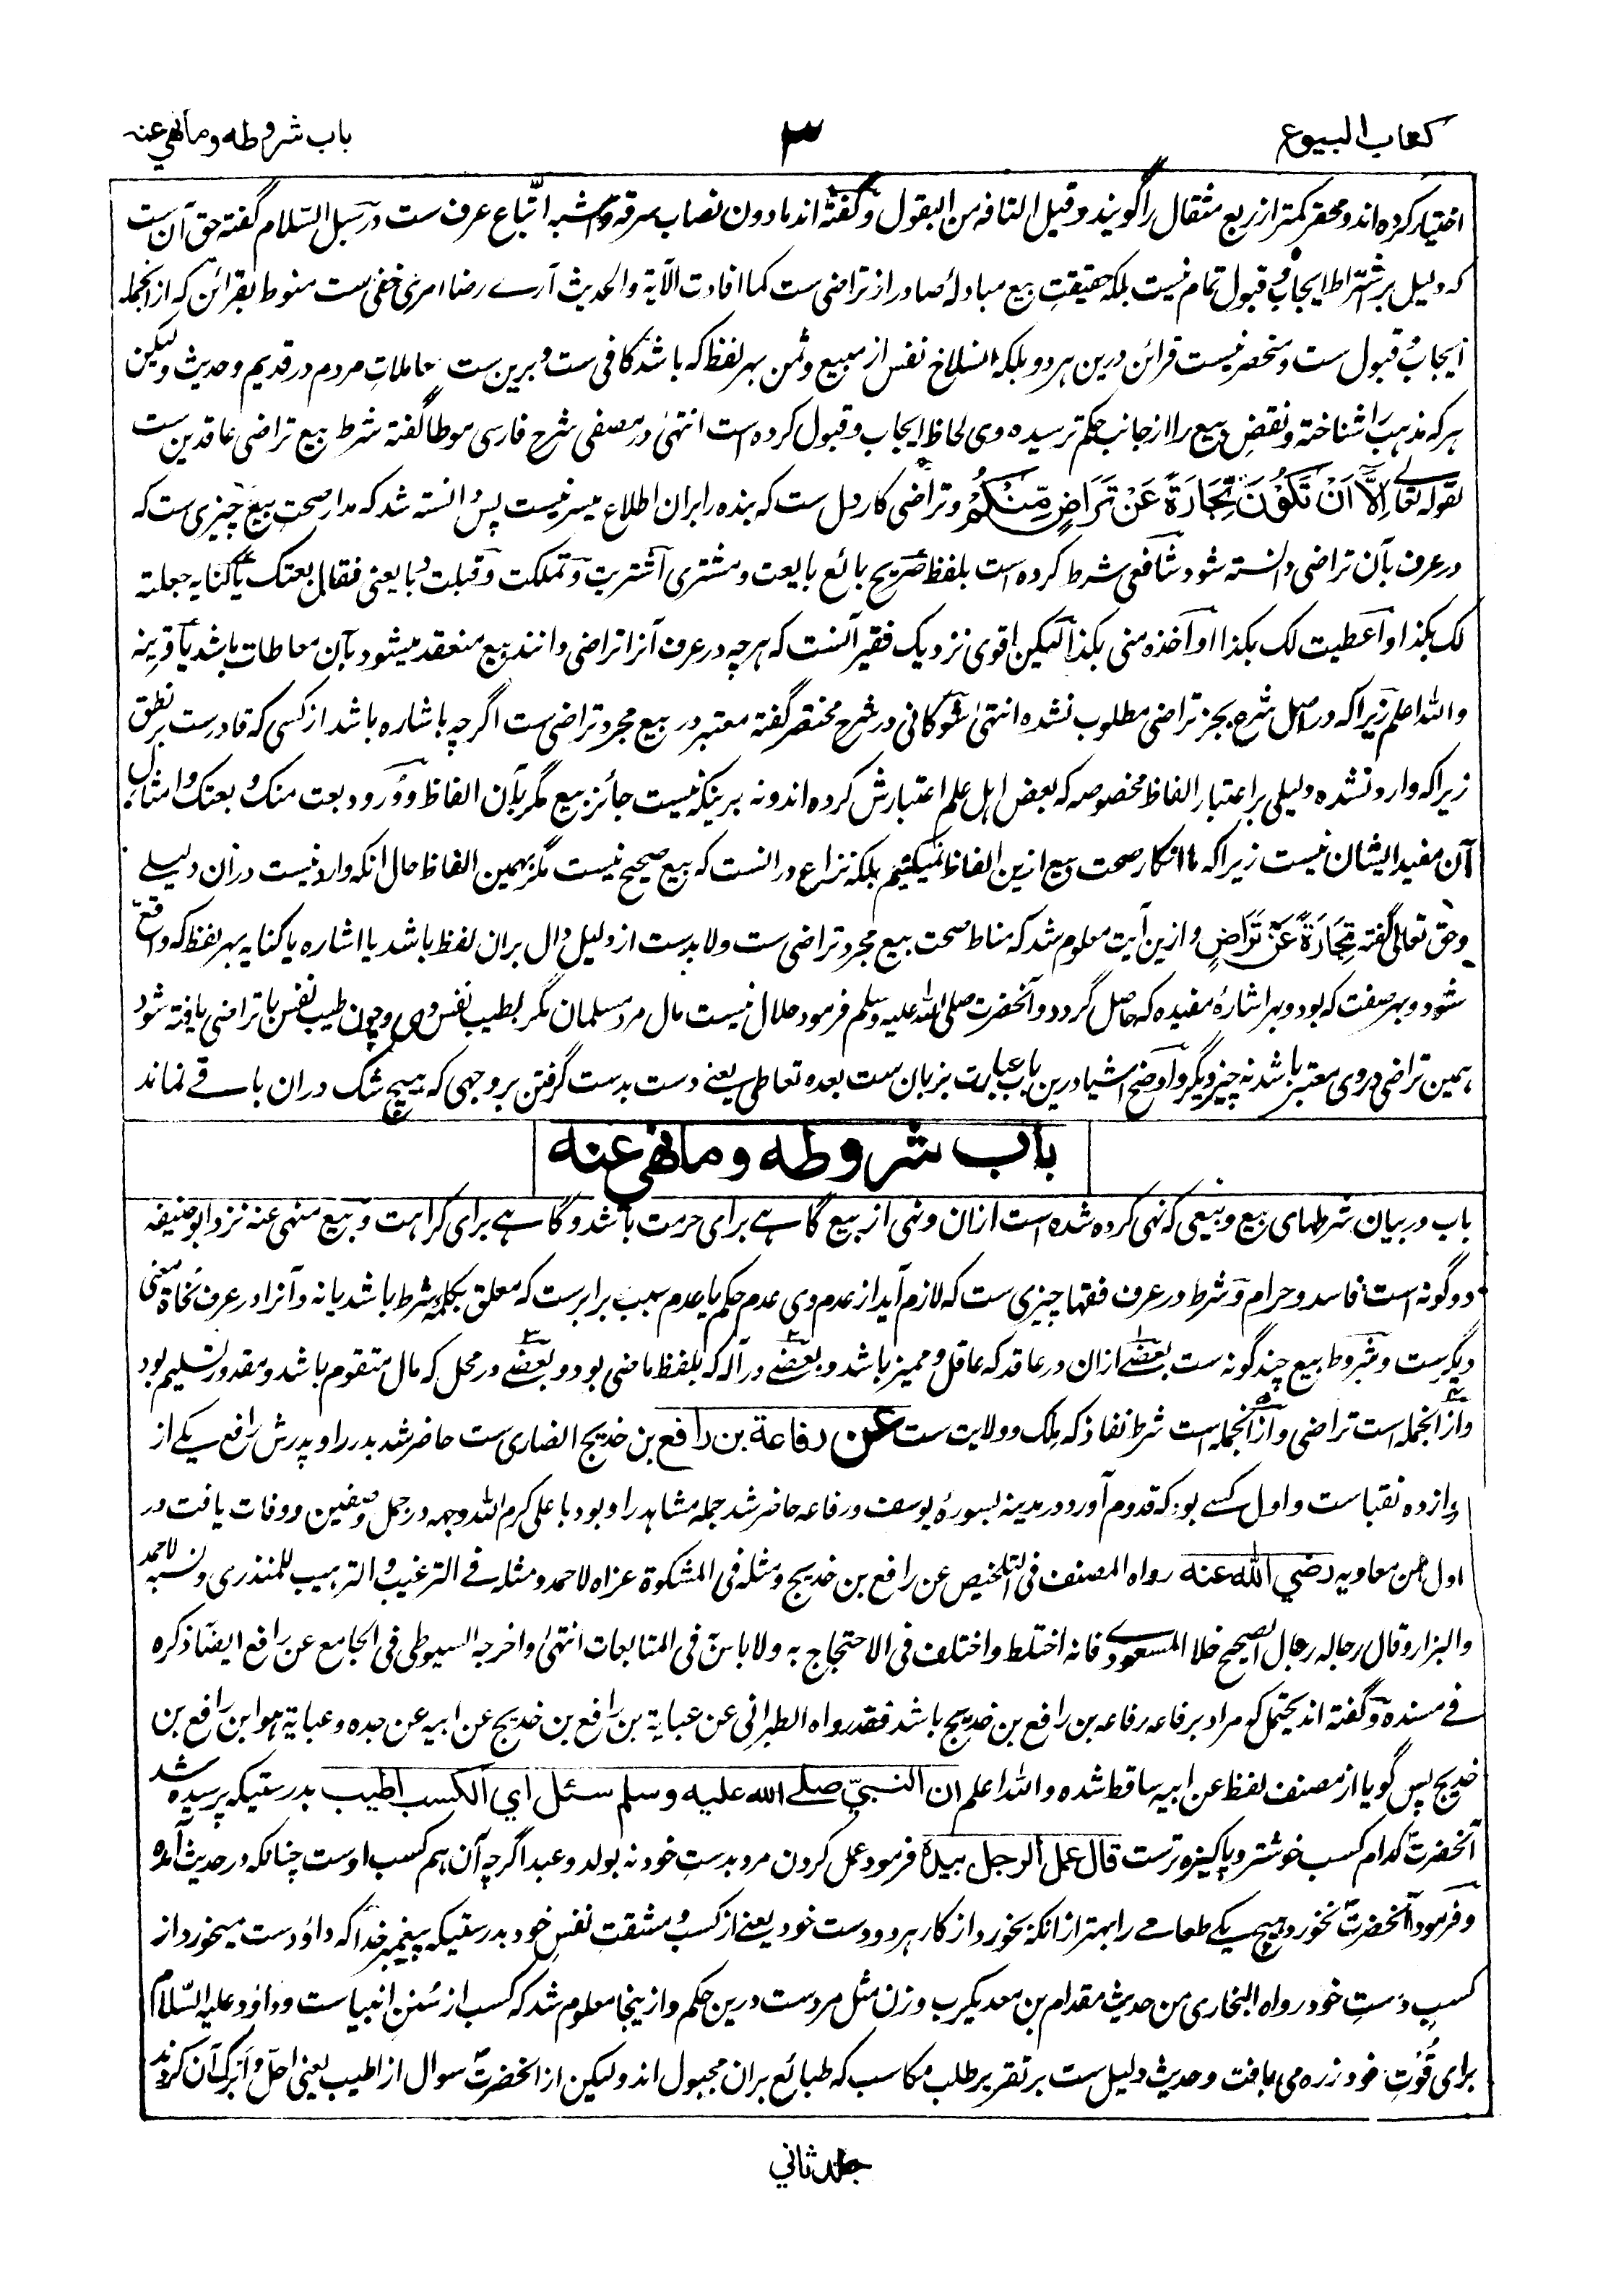 کتاب البیوع
۳
باب شروطه وما نهي عنه
اختیار کرده اند و محقر کمتر از ربع مثقال را گویند و قیل التافه من البقول و گفته اند مادون نصاب سرقه و اشبه اتباع عرف ست در سبل السلام گفته حق آن ست
که دلیل بر اشتراط ایجاب و قبول تمام نیست بلکه حقیقت بیع مبادلهٔ صادر از تراضی ست کما افادت الآیة والحدیث آرے رضا امری خفی ست منوط بقرائن که از انجمله
ایجاب و قبول ست و منحصر نیست قرائن درین هر دو بلکه انسلاخ نفس از مبیع و ثمن بهر لفظ که باشد کافی ست و برین ست معاملات مردم در قدیم و حدیث ولیکن
هر که مذهب را شناخته و نقض بیع را از جانب حکم ترسیده وی لحاظ ایجاب و قبول کرده است انتهی در مصفی شرح فارسی موطا گفته شرط بیع تراضی عاقدین ست
لقوله تعالے اِلَّا اَنْ تَكُوْنَ تِجَارَةً عَنْ تَرَاضٍ مِّنْكُمْ و تراضی کار دل ست که بنده را بران اطلاع میسر نیست پس دانسته شد که مدار صحت بیع چیزی ست که
در عرف بآن تراضی دانسته شود شافعی شرط کرده است بلفظ صریح بائع بایعت و مشتری اشتریت و تملکت و قبلت و یا بعنی فقال بعتک یا کنایه جعلته
لک بکذا و اعطیت لک بکذا او اخذه منی بکذا لیکن اقوی نزدیک فقیر آنست که هر چه در عرف آنرا تراضی دانند بیع منعقد میشود بآن معاطات باشد یا قرینه
والله اعلم زیرا که در اصل شرع بجز تراضی مطلوب نشده انتهی شوکانی در شرح مختصر گفته معتبر در بیع مجرد تراضی ست اگر چه باشاره باشد از کسی که قادر ست بر نطق
زیرا که وارد نشده دلیلی بر اعتبار الفاظ مخصوصه که بعض اهل علم اعتبارش کرده اند و نه برینکه نیست جائز بیع مگر بآن الفاظ و ورود بعت منک و بعتک و امثال
آن مفید ایشان نیست زیرا که ما انکار صحت بیع ازین الفاظ نمیکنیم بلکه نزاع در انست که بیع صحیح نیست مگر بهمین الفاظ حال انکه وارد نیست دران دلیلے
وحق تعالی گفته تِجَارَةً عَنْ تَرَاضٍ و ازین آیت معلوم شد که مناط صحت بیع مجرد تراضی ست ولا بدست از دلیل دال بران لفظ باشد یا اشاره یا کنایه بهر لفظ که واقع
شود و بهر صفت که بود و بهر اشارهٔ مفیده که حاصل گردد و آنحضرت صلی الله علیه وسلم فرمود حلال نیست مال مرد مسلمان مگر بطیب نفس وی و چون طیب نفس با تراضی یافته شود
همین تراضی در وی معتبر باشد نه چیز دیگر و اوضح اشیا درین باب عبارت بزبان ست بعده تعاطی یعنے دست بدست گرفتن بر وجهی که هیچ شک دران باقے نماند
باب شروطه وما نهي عنه
باب در بیان شرطهای بیع و بیعی که نهی کرده شده است ازان و نهی از بیع گاهے برای حرمت باشد و گاهے برای کراهت و بیع منهی عنه نزد ابو حنیفه
دو گونه است فاسد و حرام و شرط در عرف فقها چیزی ست که لازم آید از عدم وی عدم حکم یا عدم سبب برابر ست که معلق بکلمهٔ شرط باشد یا نه و آنرا در عرف نحاة معنی
دیگر ست و شروط بیع چند گونه ست بعضے ازان در عاقد که عاقل و ممیز باشد و بعضے در آله که بلفظ ماضی بود و بعضے در محل که مال متقوم باشد و مقدور تسلیم بود
و از انجمله است تراضی و از انجمله است شرط نفاذ که ملک و ولایت ست عن رفاعة بن رافع بن خدیج انصاری ست حاضر شد بدر را و پدرش رافع یکے از
دوازده نقبا ست و اول کسے بود که قدوم آورد در مدینه بسورهٔ یوسف و رفاعه حاضر شد جمله مشاهد را و بود با علی کرم الله وجهه در جمل و صفین و وفات یافت در
اول زمن معاویه رضي الله عنه رواه المصنف فی التلخیص عن رافع بن خدیج و مثله فی المشکوة عزاه لاحمد و مثله فے الترغیب والترهیب للمنذری و نسبه لاحمد
والبزار وقال رجاله رجال الصحیح خلا المسعودے فانه اختلط واختلف فی الاحتجاج به ولا باس فی المتابعات انتهی و اخرجه السیوطی فی الجامع عن رافع ایضا ذکره
فے مسنده و گفته اند یحتمل که مراد برفاعه رفاعه بن رافع بن خدیج باشد فقد رواه الطبرانی عن عبایة بن رافع بن خدیج عن ابیه عن جده و عبایة هو ابن رافع بن
خدیج پس گویا از مصنف لفظ عن ابیه ساقط شده والله اعلم ان النبيّ صلے الله عليه وسلم سئل اي الكسب اطيب بدرستیکه پرسیده شد
آنحضرت کدام کسب خوشتر و پاکیزه تر ست قال عمل الرجل بيده فرمود عمل کردن مرد بدست خود نه بولد و عبد اگر چه آن هم کسب اوست چنانکه در حدیث آمده
و فرمود آنحضرت نخورد هیچ یکے طعامے را بهتر از انکه بخورد از کار هر دو دست خود یعنے از کسب و مشقت نفس خود بدرستیکه پیغمبر خدا که داود ست میخورد از
کسب دست خود رواه البخاری من حدیث مقدام بن معدیکرب و زن مثل مرد ست درین حکم و ازینجا معلوم شد که کسب از سنن انبیا ست و داود علیه السلام
برای قُوت خود زره می بافت و حدیث دلیل ست بر تقریر طلب مکاسب که طبائع بران مجبول اند ولیکن از انحضرت سوال از اطیب یعنی احل و ابرک آن کردند
جلد ثاني